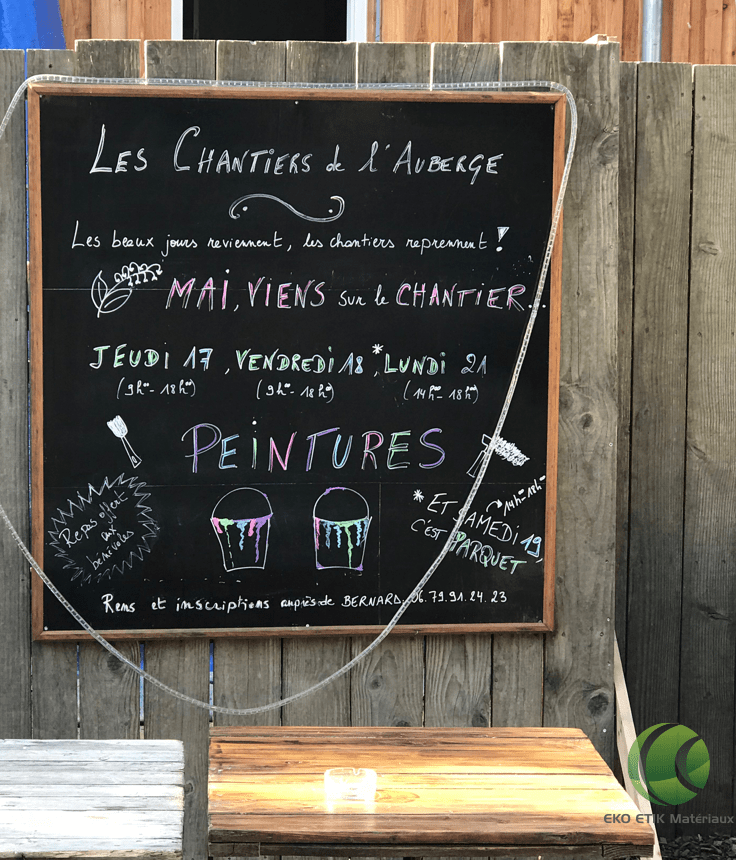 LES CHANTIERS de l'AUBERGE
Les beaux jours reviennent, les chantiers reprennent !
MAI, VIENS sur le CHANTIER
JEUDI 17, VENDREDI 18, *LUNDI 21
(9h00 - 18h00) (9h00 - 18h00) (14h00 - 18h00)
PEINTURES
Repas offert
aux
bénévoles
14h00 - 18h00
* ET SAMEDI 19,
c'est PARQUET
Rens et inscriptions auprès de BERNARD. 06.79.91.24.23
EKO ETIK Matériaux